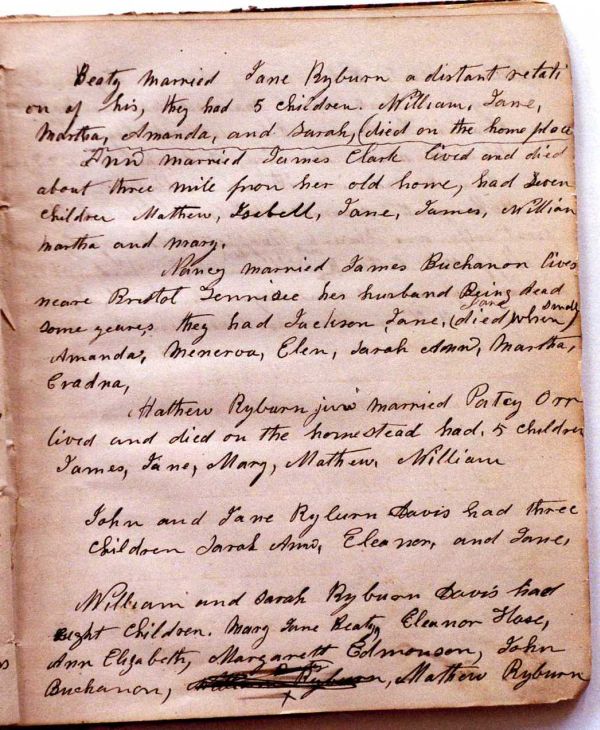 Beaty married Jane Ryburn a distant relati
on of his, they had 5 children. William, Jane,
Martha, Amanda, and Sarah, (died on the home place
Ann married James Clark lived and died
about three mile from her old home, had Seven
children Mathew, Isebell, Jane, James, William
martha and mary.
Nancy married James Buchanon lives
neare Bristol Tennisee her husband Being dead
some yeares they had Jackson, Jane, (Jane died when small)
Amanda, Menerva, Elen, Sarah Ann, Martha,
Eradna,
Mathew Ryburn jun married Patcy Orr
lived and died on the homestead had 5 children
James, Jane, Mary, Mathew, William
John and Jane Ryburn Davis had three
children Sarah Ann, Eleanor, and Jane,
William and Sarah Ryburn Davis had
eight children. Mary Jane Beaty, Eleanor Hose,
Ann Elizabeth, Margarett Edmonson, John
Buchanon, William Ryburn, Mathew Ryburn